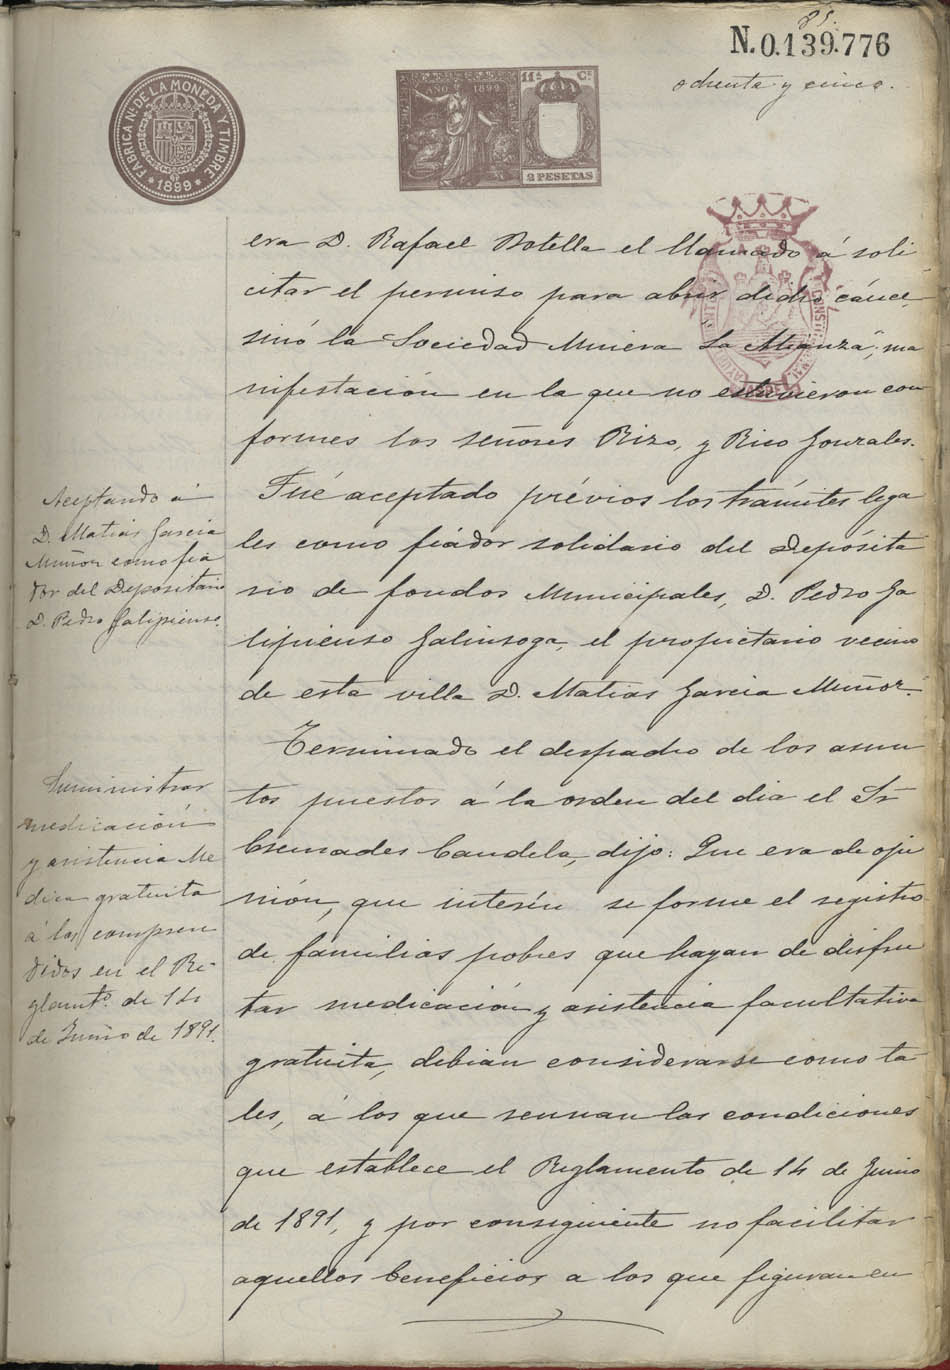 85.
N.0.139.776
ochenta y cinco.
FÁBRICA NL. DE LA MONEDA Y TIMBRE
* 1899 *
AÑO 1899
11ª Cª
2 PESETAS
era D. Rafael Botella el llamado á soli
citar el permiso para abrir dicho cáuce,
sinó la Sociedad Minera La Alianza"; ma
nifestación en la que no estuvieron con
formes los señores Rizo, y Rico Gonzales.
Aceptando á
D. Matias Garcia
Muñoz como fia
dor del Depositario
D. Pedro Galipienso.
Fué aceptado prévios los trámites lega
les como fiador solidario del Deposita
rio de fondos Municipales, D. Pedro Ga
lipienso Galinsoga, el propietario vecino
de esta villa D. Matias Garcia Muñoz.
Suministrar
medicación
y asistencia Me
dica gratuita
á los compren
didos en el Re-
glamtº. de 14
de Junio de 1891.
Terminado el despacho de los asun
tos puestos á la orden del dia el Sr.
Cremades Candela, dijo: Que era de opi
nión, que interín se forme el registro
de familias pobres que hayan de disfru
tar medicación y asistencia facultativa
gratuita, debian considerarse como ta
les, á los que reunan las condiciones
que establece el Reglamento de 14 de Junio
de 1891, y por consiguiente no facilitar
aquellos beneficios a los que figuran en